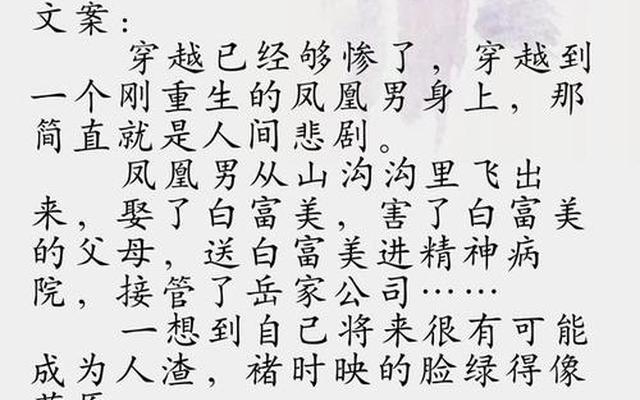 文案：
穿越已经够惨了，穿越到
一个刚重生的凤凰男身上，那
简直就是人间悲剧。
凤凰男从山沟沟里飞出
来，娶了白富美，害了白富美
的父母，送白富美进精神病
院，接管了岳家公司……
一想到自己将来很有可能
成为人渣，褚时映的脸绿得像